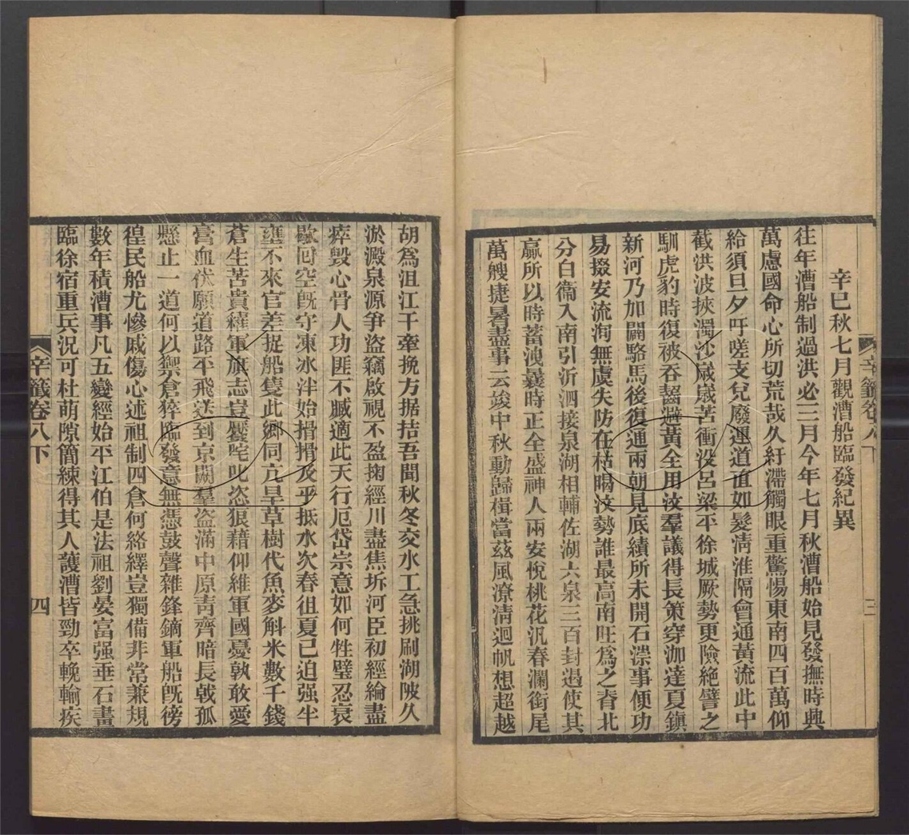 辛巳秋七月觀漕船臨發紀異
往年漕船制過洪必三月今年七月秋漕船始見發撫時典
萬慮國命心所切荒哉久紆滯觸眼重驚惕東南四百萬仰
給須旦夕吁嗟支兒廢運道直如髮淸淮隔會通黃流此中
截洪波挾濁沙嵗嵗苦衝没呂梁平徐城厥勢更險絶譬之
馴虎豹時復被吞齧避黃全用汶羣議得長策穿泇達夏鎭
新河乃加闢駱馬後復通兩朝見底績所未開石澇事便功
易掇安流洵無虞失防在枯暍汶勢誰最高南旺爲之脊北
分白衞入南引沂泗接泉湖相輔佐湖六泉三百封遏使其
贏所以時蓄洩曩時正全盛神人兩安悅桃花汎春瀾銜尾
萬艘捷暑盡事云竣中秋動歸楫當茲風潦淸迴帆想超越
辛籤卷八下
三
胡爲沮江干牽挽方据拮吾聞秋冬交水工急挑刷湖陂久
淤澱泉源爭盜竊啟視不盈掬經川盡焦坼河臣初經綸盡
瘁毀心骨人功匪不臧適此天行厄岱宗意如何牲璧忍衰
歇囘空旣守凍冰泮始搰搰及乎抵水次春徂夏已迫强半
壅不來官差捉船隻此鄉同亢旱草樹代魚麥斛米數千錢
蒼生苦貴糴軍旗志豈饜咤叱恣狼藉仰維軍國憂孰敢愛
膏血伏願道路平飛送到京闕羣盜滿中原靑齊暗長戟孤
懸止一道何以禦倉猝臨發意無憑鼓聲雜鋒鏑軍船旣徬
徨民船尤慘戚傷心述祖制四倉何絡繹豈獨備非常兼規
數年積漕事凡五變經始平江伯是法祖劉晏富强垂石畫
臨徐宿重兵況可杜萌隙簡練得其人護漕皆勁卒輓輸疾
辛籤卷八下
四